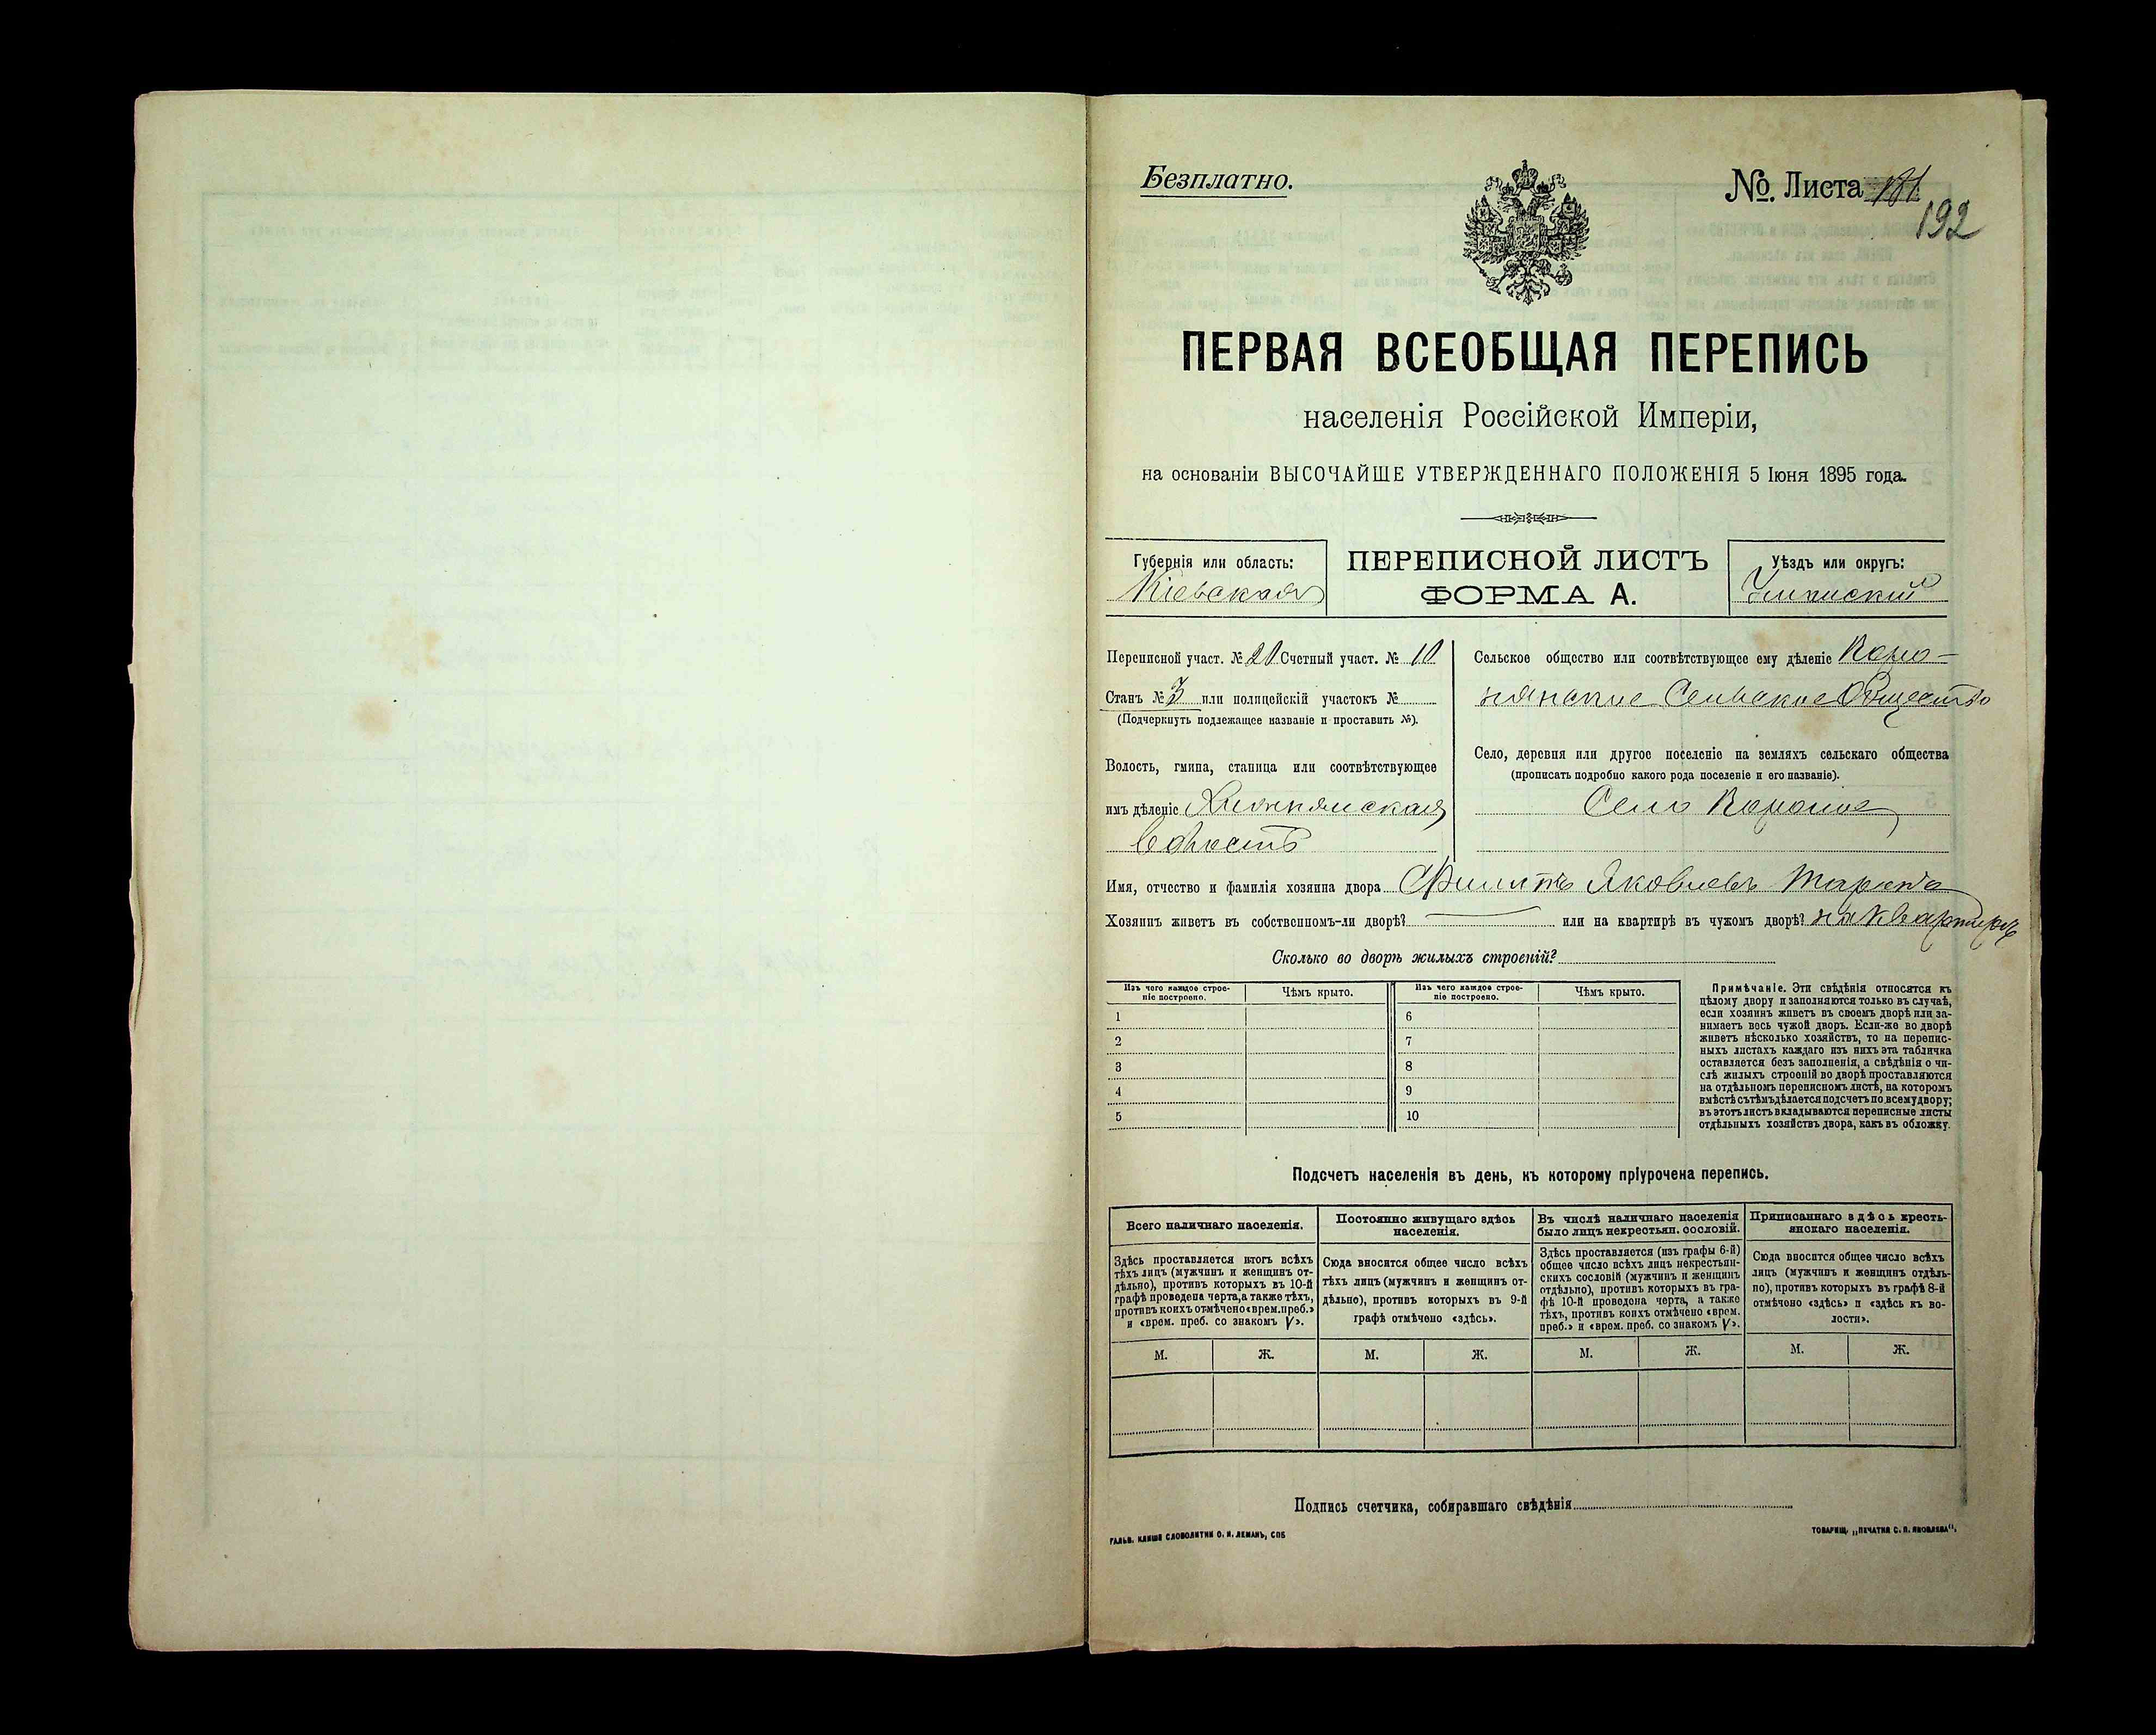 Безплатно.
№. Листа 181
192
ПЕРВАЯ ВСЕОБЩАЯ ПЕРЕПИСЬ
населенія Россійской Имперіи,
на основаніи ВЫСОЧАЙШЕ УТВЕРЖДЕННАГО ПОЛОЖЕНІЯ 5 Іюня 1895 года.
Губернія или область:
Кіевская
ПЕРЕПИСНОЙ ЛИСТЪ
ФОРМА А.
Уѣздъ или округъ:
Уманскій
Переписной участ. № 20 Счетный участ. № 10
Станъ № 3 или полицейскій участокъ №
(Подчеркнуть подлежащее названіе и проставить №).
Волость, гмина, станица или соотвѣтствующее
имъ дѣленіе
волость
Сельское общество или соотвѣтствующее ему дѣленіе
Сельское Общество
Село, деревня или другое поселеніе на земляхъ сельскаго общества
(прописать подробно какого рода поселеніе и его названіе).
Село
Имя, отчество и фамилія хозяина двора Филипъ Яковлевъ
Хозяинъ живетъ въ собственномъ-ли дворѣ? или на квартирѣ въ чужомъ дворѣ? на квартирѣ
Сколько во дворѣ жилыхъ строеній?
Изъ чего каждое строе-
ніе построено.
Чѣмъ крыто.
Изъ чего каждое строе-
ніе построено.
Чѣмъ крыто.
1 6
2 7
3 8
4 9
5 10
Примѣчаніе. Эти свѣдѣнія относятся къ
цѣлому двору и заполняются только въ случаѣ,
если хозяинъ живетъ въ своемъ дворѣ или за-
нимаетъ весь чужой дворъ. Если-же во дворѣ
живетъ нѣсколько хозяйствъ, то на перепис-
ныхъ листахъ каждаго изъ нихъ эта табличка
оставляется безъ заполненія, а свѣдѣнія о чи-
слѣ жилыхъ строеній во дворѣ проставляются
на отдѣльномъ переписномъ листѣ, на которомъ
вмѣстѣ съ тѣмъ дѣлается подсчетъ по всему двору;
въ этотъ листъ вкладываются переписные листы
отдѣльныхъ хозяйствъ двора, какъ въ обложку.
Подсчетъ населенія въ день, къ которому пріурочена перепись.
Всего наличнаго населенія.
Здѣсь проставляется итогъ всѣхъ
тѣхъ лицъ (мужчинъ и женщинъ от-
дѣльно), противъ которыхъ въ 10-й
графѣ проведена черта, а также тѣхъ,
противъ коихъ отмѣчено «врем. преб.»
и «врем. преб. со знакомъ V».
Постоянно живущаго здѣсь
населенія.
Сюда вносится общее число всѣхъ
тѣхъ лицъ (мужчинъ и женщинъ от-
дѣльно), противъ которыхъ въ 9-й
графѣ отмѣчено «здѣсь».
Въ числѣ наличнаго населенія
было лицъ некрестьян. сословій.
Здѣсь проставляется (изъ графы 6-й)
общее число всѣхъ лицъ некрестьян-
скихъ сословій (мужчинъ и женщинъ
отдѣльно), противъ которыхъ въ гра-
фѣ 10-й проведена черта, а также
тѣхъ, противъ коихъ отмѣчено «врем.
преб.» и «врем. преб. со знакомъ V».
Приписаннаго здѣсь кресть-
янскаго населенія.
Сюда вносится общее число всѣхъ
лицъ (мужчинъ и женщинъ отдѣль-
но), противъ которыхъ въ графѣ 8-й
отмѣчено «здѣсь» и «здѣсь къ во-
лости».
М. Ж. М. Ж. М. Ж. М. Ж.
Подпись счетчика, собиравшаго свѣдѣнія
ГАЛЬВ. КЛИШЕ СЛОВОЛИТНИ О. И. ЛЕМАНЪ, СПБ
ТОВАРИЩ. „ПЕЧАТНЯ С. П. ЯКОВЛЕВА".